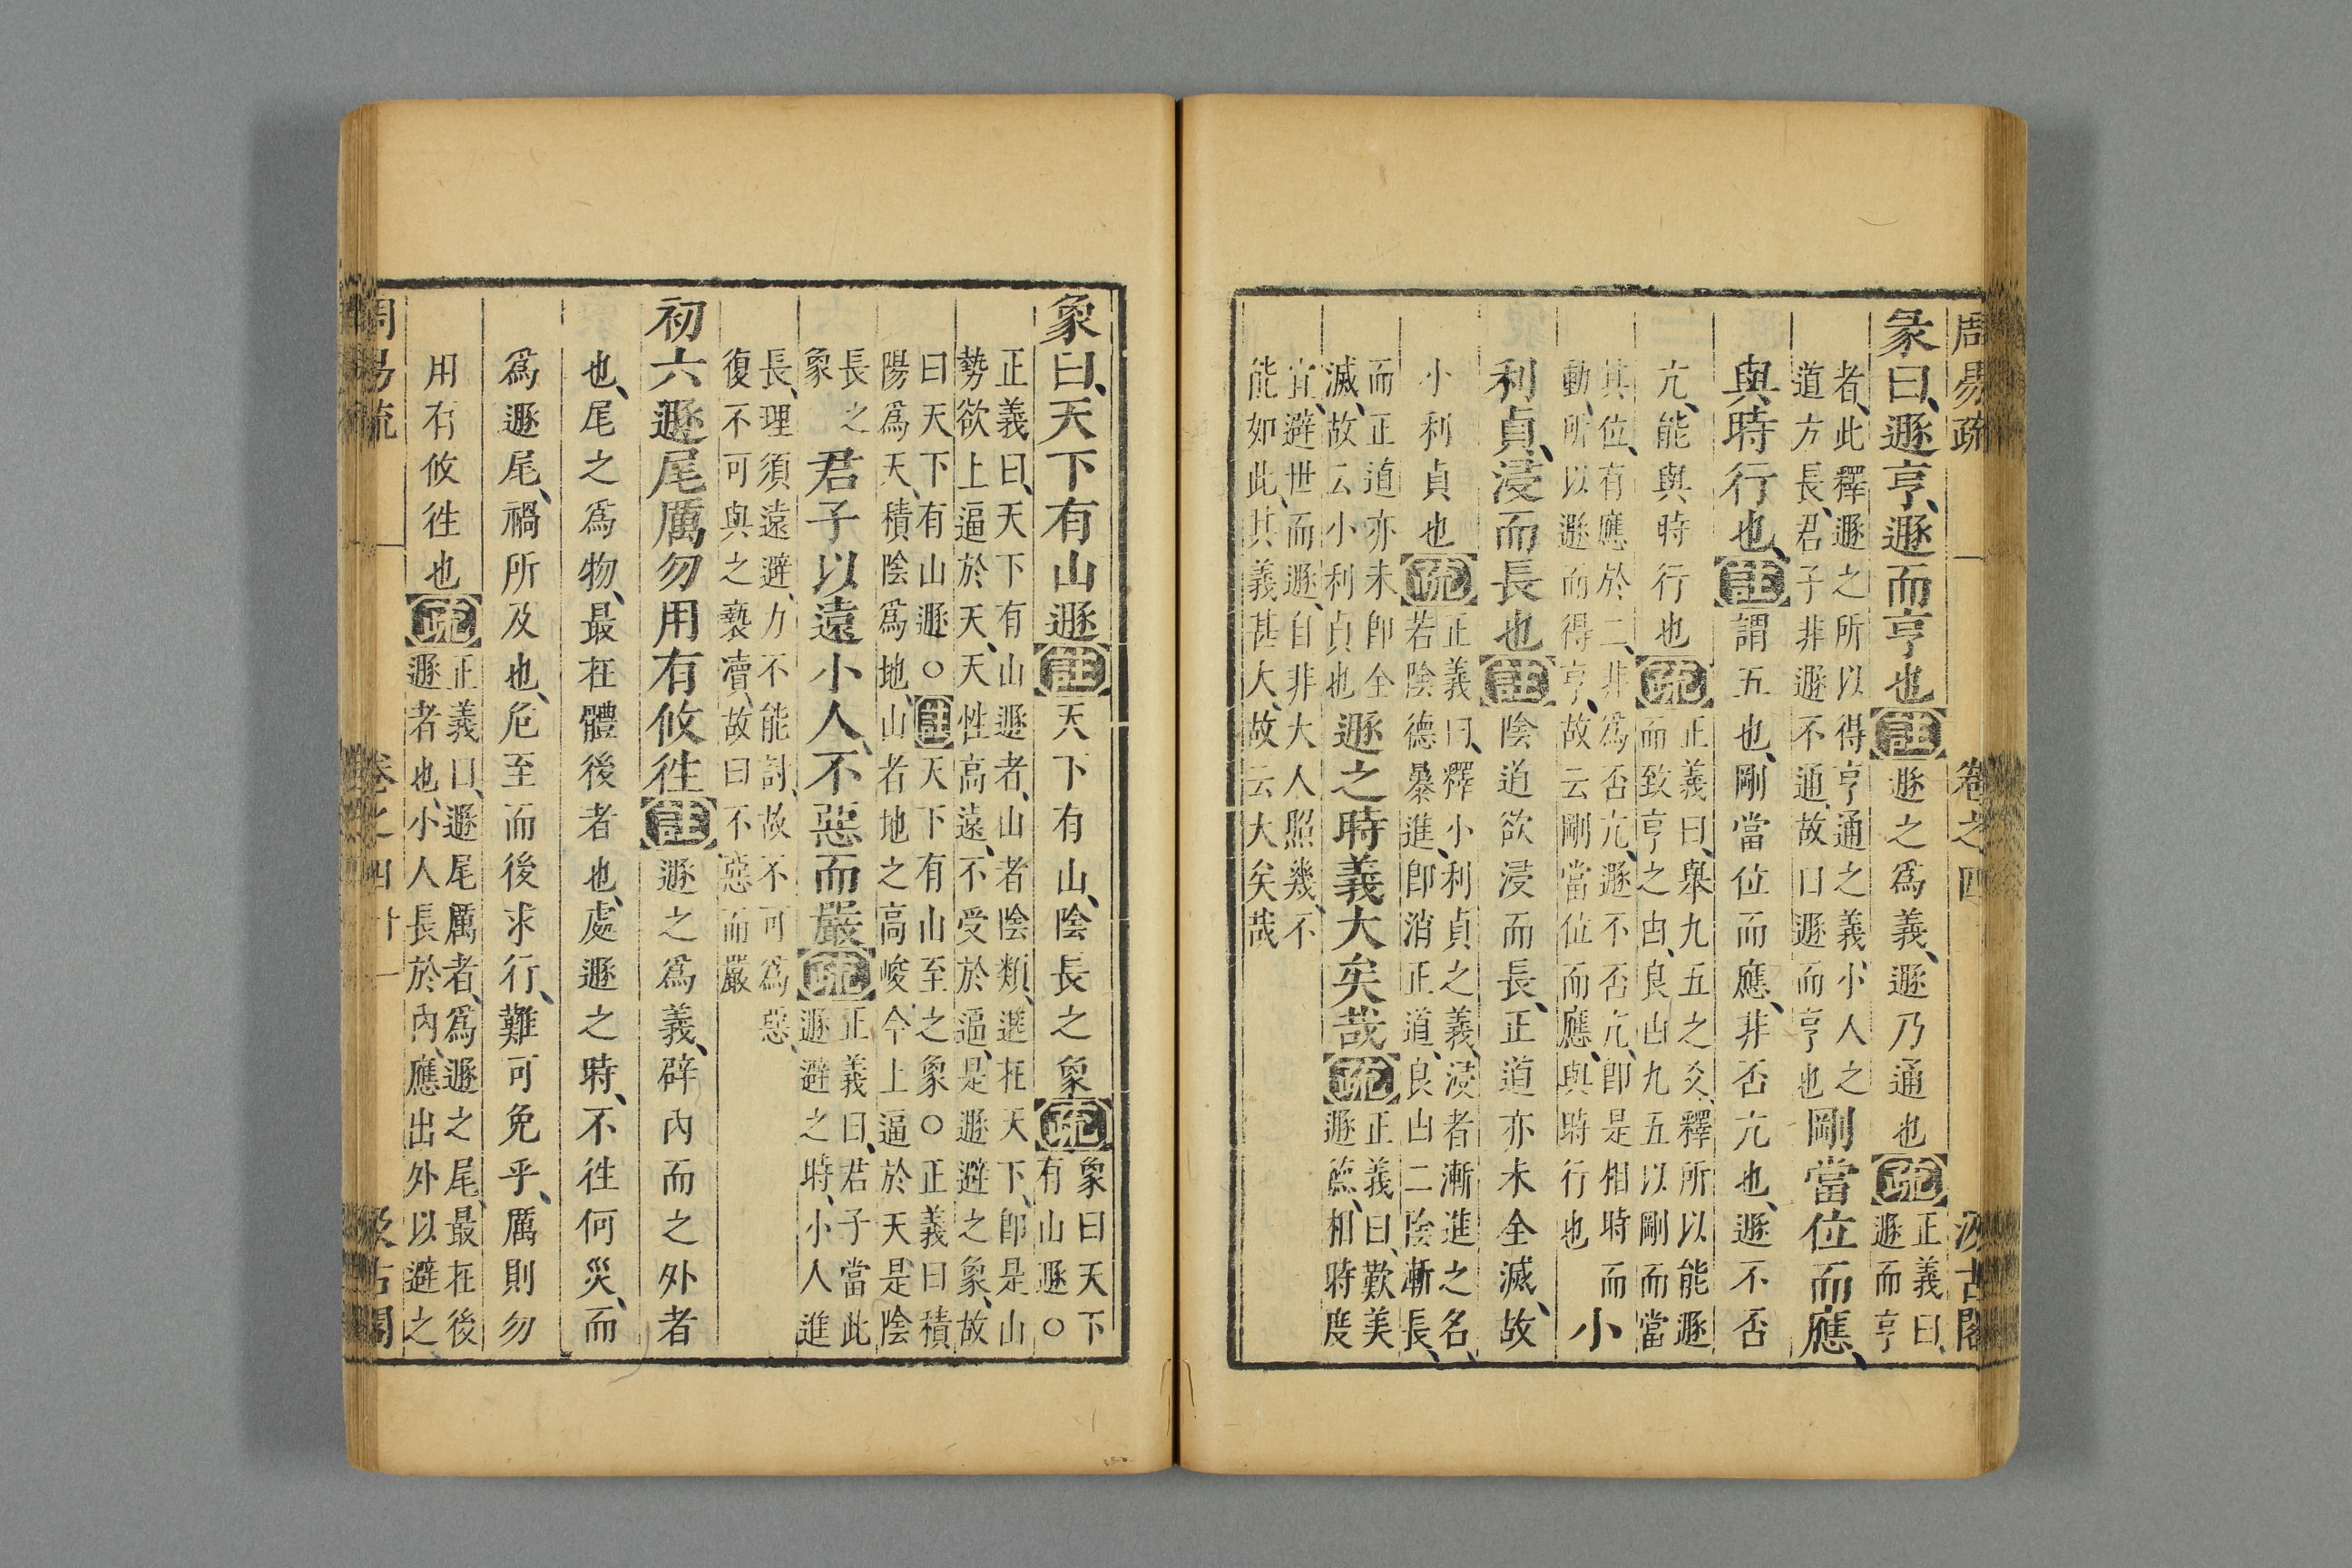 周易疏 卷之四 汲古閣
彖曰、遯亨、遯而亨也註遯之爲義、遯乃通也疏正義曰、遯而亨
者、此釋遯之所以得亨通之義、小人之道方長、君子非遯不通、故曰遯而亨也剛當位而應、
與時行也、註謂五也、剛當位而應、非否亢也、遯不否
亢、能與時行也疏正義曰、舉九五之爻、釋所以能遯而致亨之由、良由九五以剛而當
其位、有應於二、非爲否亢、遯不否亢、即是相時而動、所以遯而得亨、故云剛當位而應、與時行也小
利貞、浸而長也註陰道欲浸而長、正道亦未全滅、故
小利貞也疏正義曰、釋小利貞之義、浸者漸進之名、若陰德暴進、即消正道、良由二陰漸長、
而正道亦未即全滅、故云小利貞也遯之時義大矣哉疏正義曰、歎美遯、相時度
宜、避世而遯、自非大人照幾、不能如此、其義甚大、故云大矣哉
象曰、天下有山遯註天下有山、陰長之象疏象曰天下有山遯○
正義曰、天下有山遯者、山者陰類、進在天下、即是山勢欲上逼於天、天性高遠、不受於逼、是遯避之象、故
曰天下有山遯○註天下有山至之象○正義曰積陽爲天、積陰爲地、山者地之高峻、今上逼於天、是陰
長之象君子以遠小人、不惡而嚴疏正義曰、君子當此遯避之時、小人進
長、理須遠避、力不能討、故不可爲惡、復不可與之褻瀆、故曰不惡而嚴
初六遯尾厲勿用有攸往註遯之爲義、辟內而之外者
也、尾之爲物、最在體後者也、處遯之時、不往何災、而
爲遯尾、禍所及也、危至而後求行、難可免乎、厲則勿
用有攸往也疏正義曰、遯尾厲者、爲遯之尾、最在後遯者也、小人長於內、應出外以避之
周易疏 卷之四 十一 汲古閣